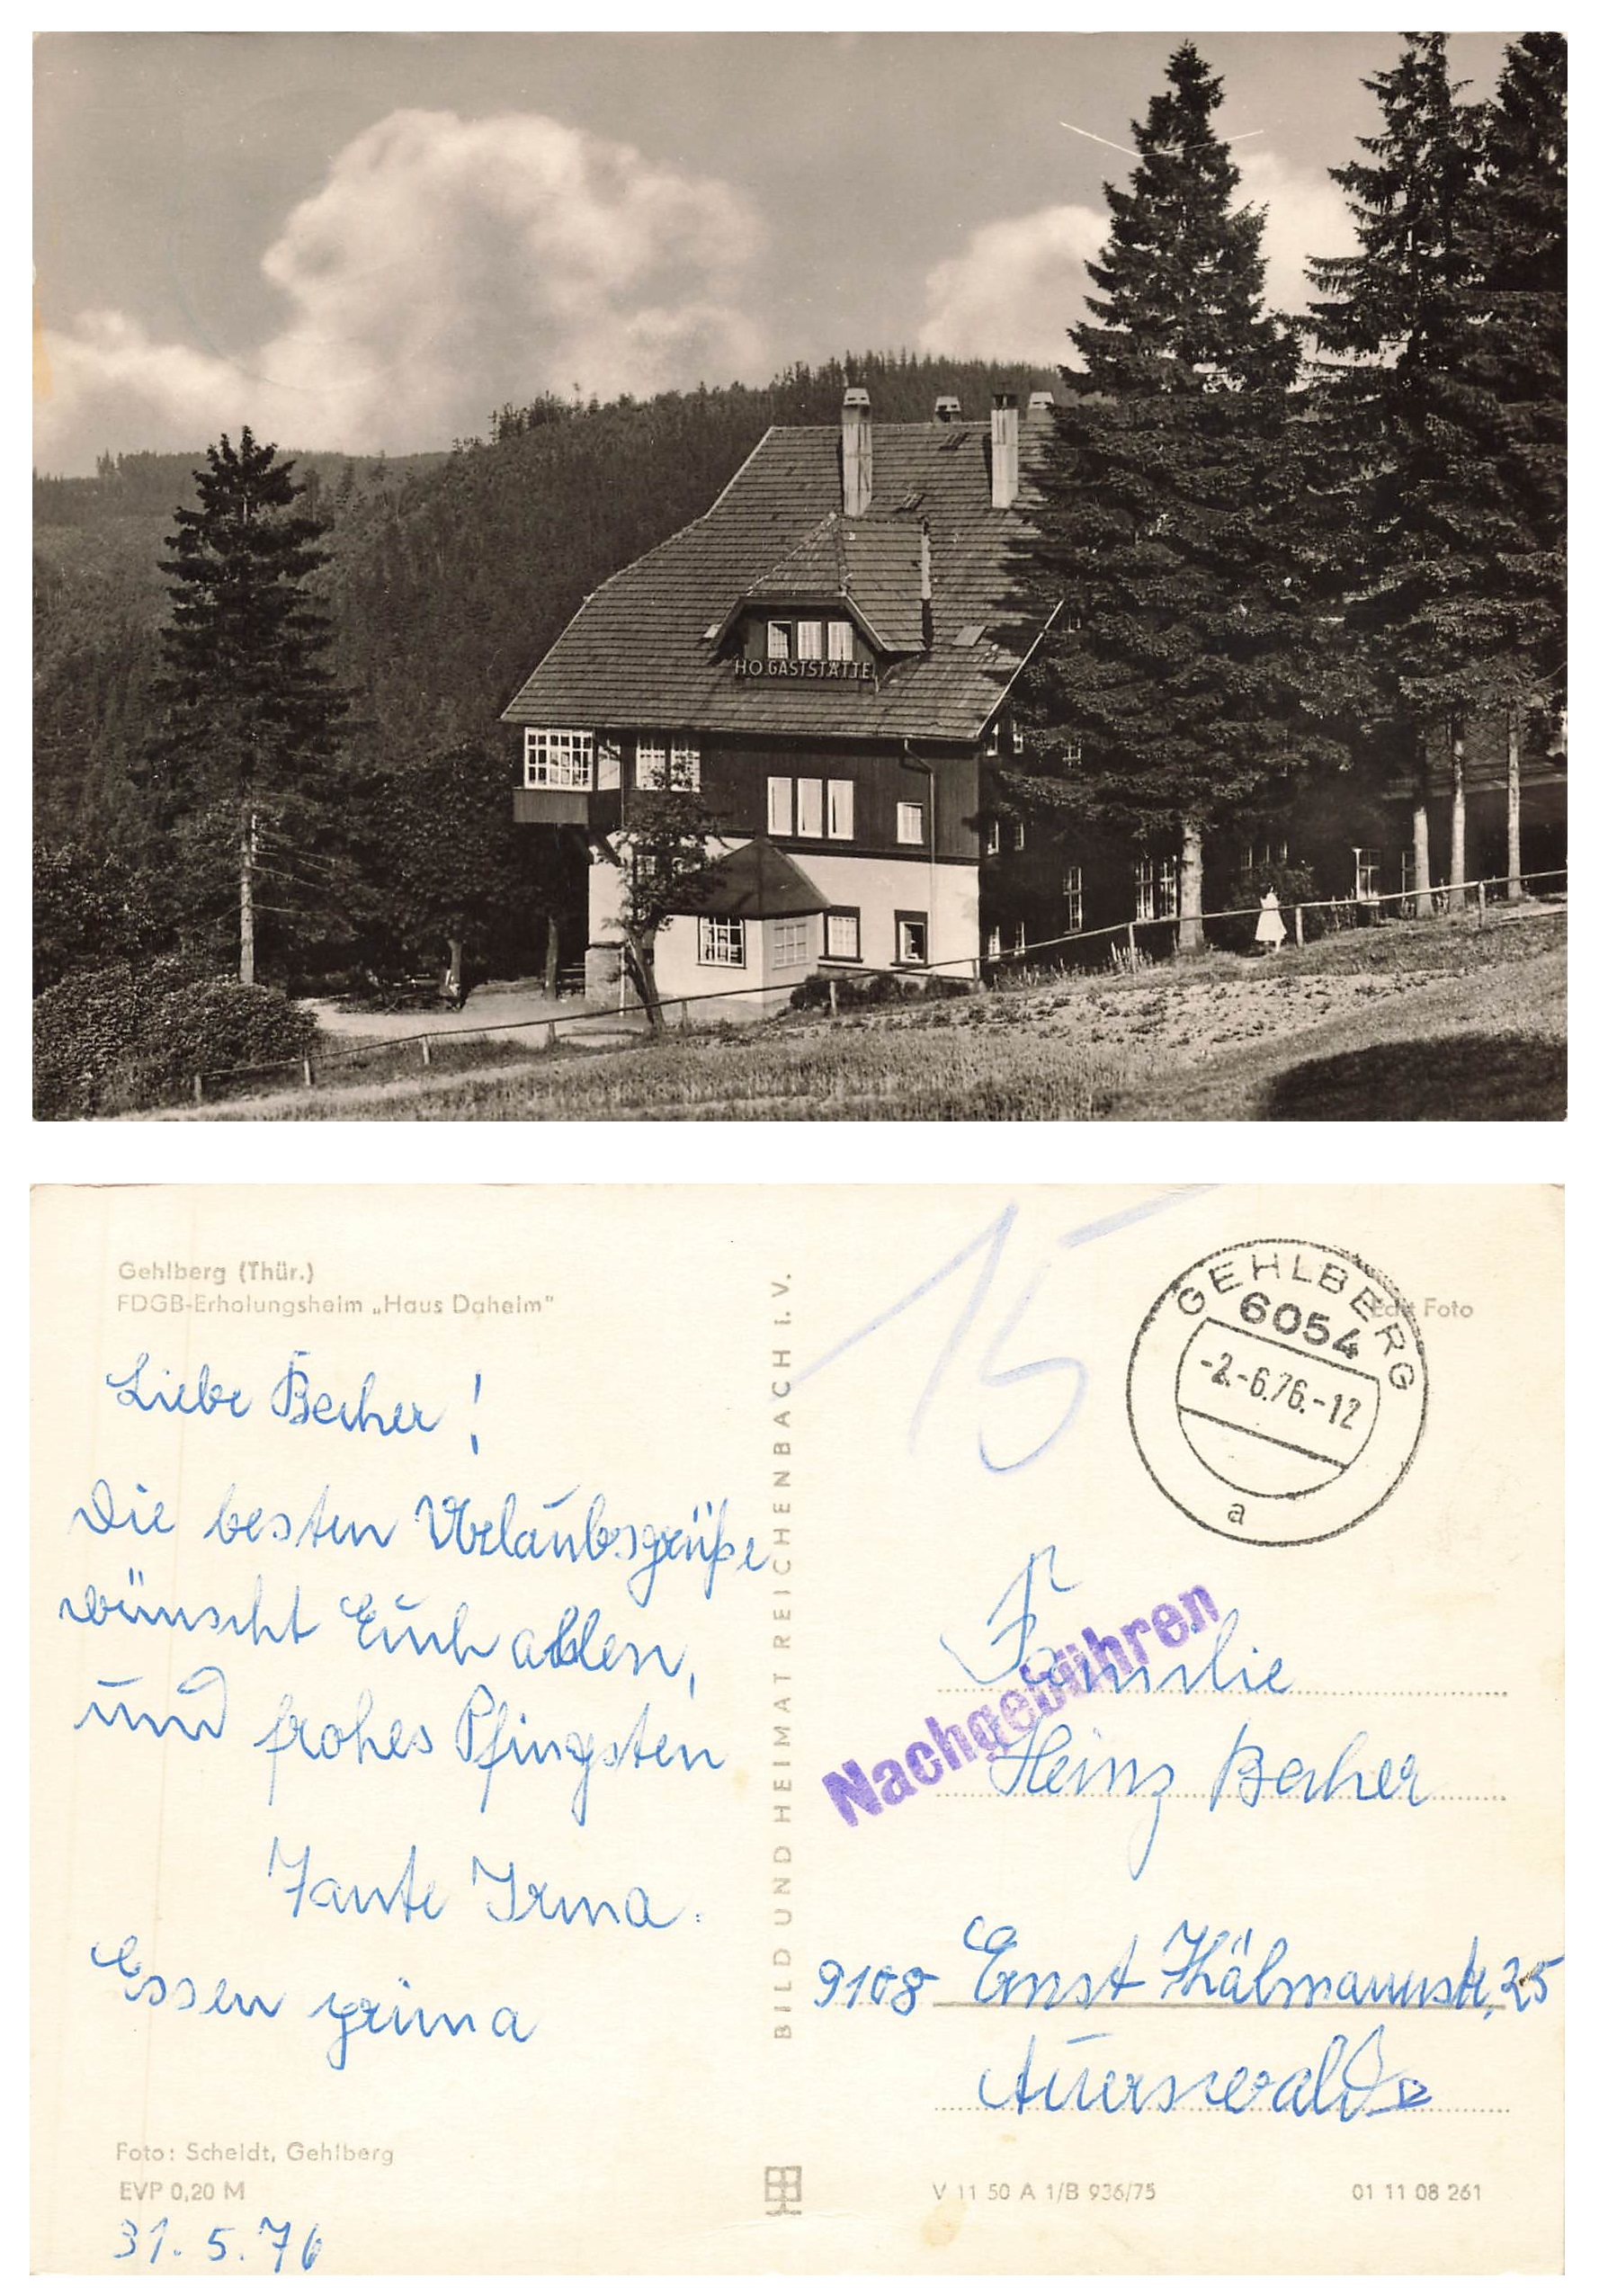 HO GASTSTÄTTE
Gehlberg (Thür.)
FDGB-Erholungsheim „Haus Daheim"
Liebe Becher!
Die besten Urlaubsgrüße
wünscht Euch allen,
und frohes Pfingsten
Tante Irma.
Essen prima
Foto: Scheldt, Gehlberg
EVP 0,20 M
31. 5. 76
BILD UND HEIMAT REICHENBACH i. V.
15
GEHLBERG
6054
-2.-6.76.-12
a
Echt Foto
Nachgebühren
Familie
Heinz Becher
9108 Ernst Thälmannstr. 25
Auerswalde
V 11 50 A 1/B 936/75
01 11 08 261